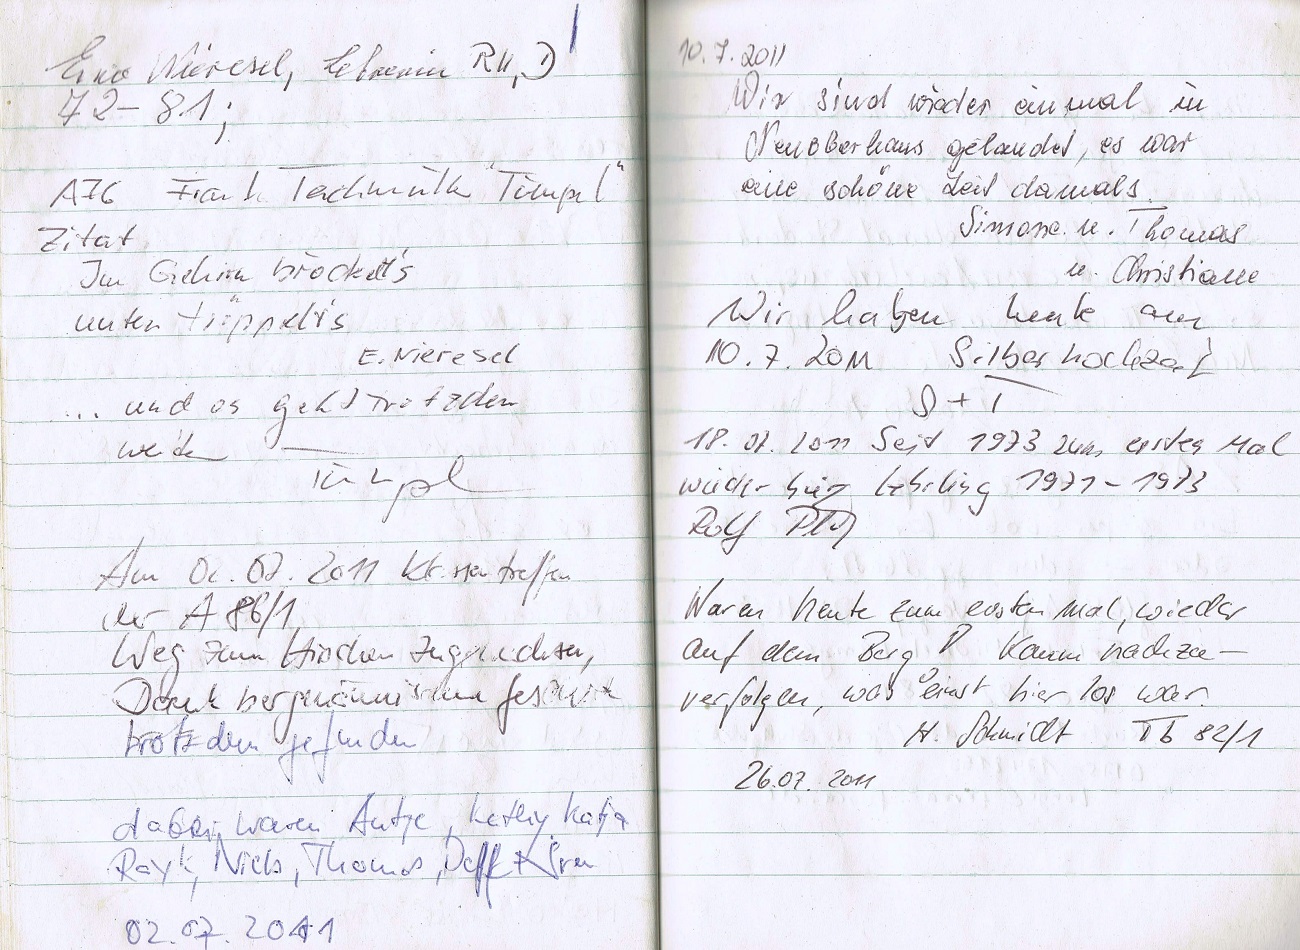 Nieresel, Lehrerin RU, D
72-81;
A76 Frank "Tümpel"
Zitat
Im Gehirn bröckelt's
unten tröppelt's
E. Nieresel
... und es geht trotzdem
weiter
Tümpel
Am 02.07.2011 Klassentreffen
der A 86/1
Weg zum zugewachsen,
Dank bergmännischem
trotzdem gefunden
dabei waren Antje, Kathy, Katja
Rayk, Niels, Thomas,
02.07.2011
10.7.2011
Wir sind wieder einmal in
Neuoberhaus gelandet, es war
eine schöne Zeit damals.
Simone u. Thomas
u. Christiane
Wir haben heute am
10.7.2011 Silberhochzeit
S + T
18.07.2011 Seit 1973 zum ersten Mal
wieder hier Lehrling 1971-1973
Rolf
Waren heute zum ersten Mal, wieder
auf dem Berg! Kaum nachzu-
verfolgen, was einst hier los war.
H. Schmidt Tb 82/1
26.07.2011